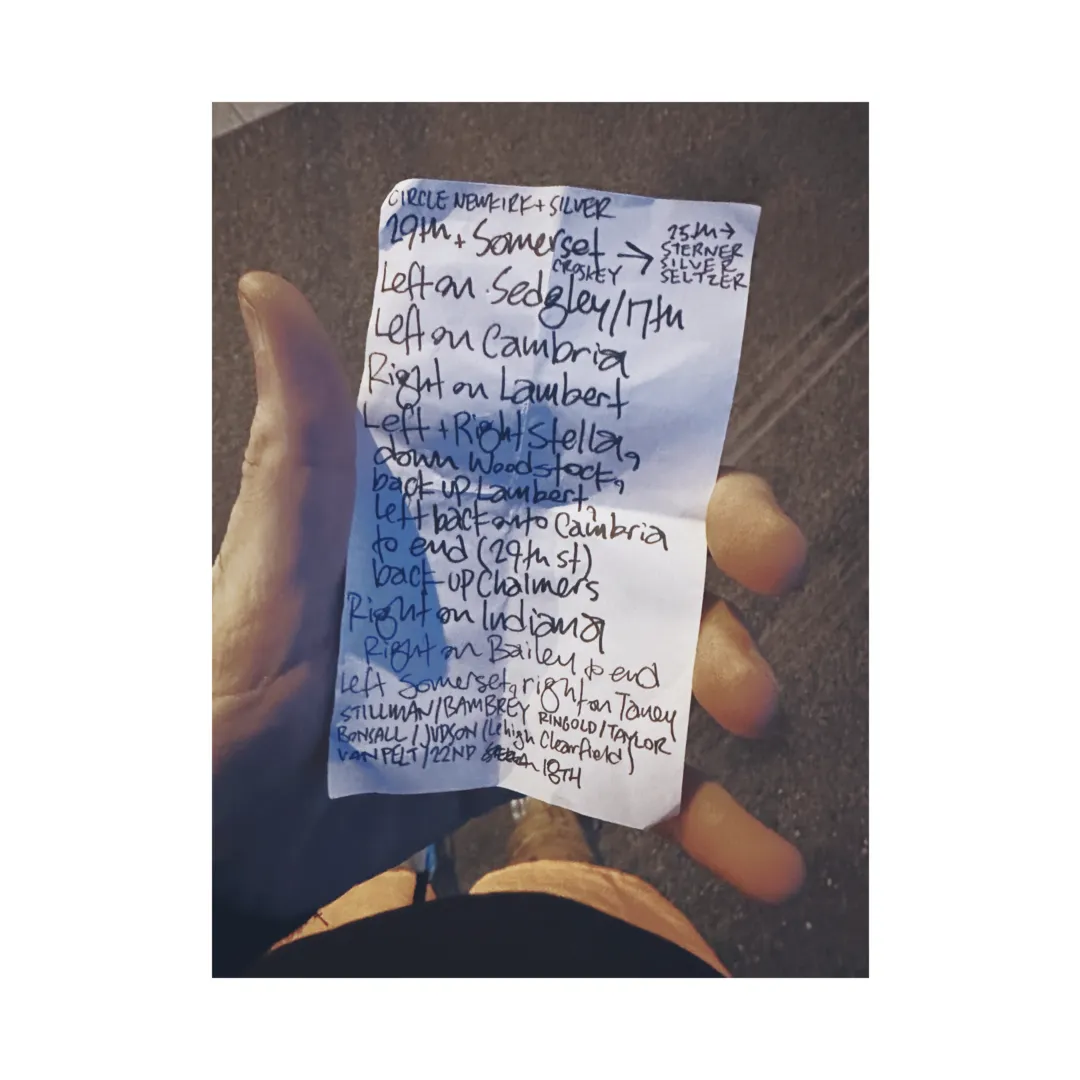 CIRCLE NEWKIRK + SILVER
29th + Somerset →
CROSKEY
25th →
STERNER
SILVER
SELTZER
Left on Sedgley/17th
Left on Cambria
Right on Lambert
Left + Right Stella,
down Woodstock,
back up Lambert,
Left back onto Cambria
to end (29th st)
back up Chalmers
Right on Indiana
Right on Bailey to end
Left Somerset, right on Taney
STILLMAN/BAMBREY RINGOLD/TAYLOR
BONSALL/JUDSON (Lehigh Clearfield)
VAN PELT/22ND 18TH